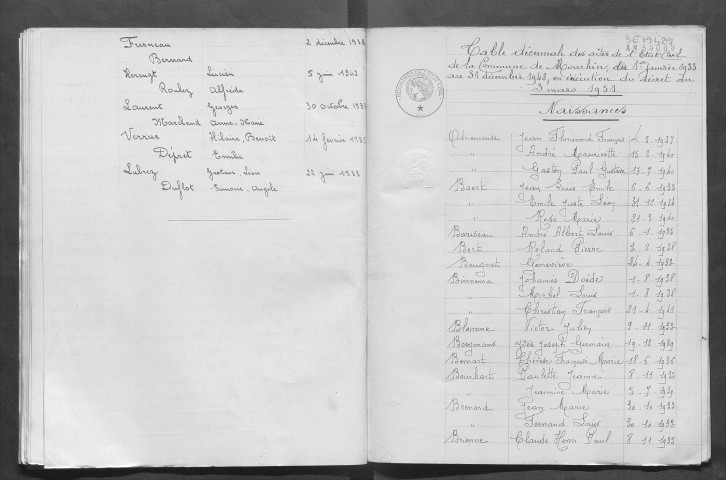 Fresneau 2 décembre 1938
Bernard
Herregt Lucien 5 juin 1942
Roulez Alfréda
Laurent Georges 30 octobre 1937
Marchand Anne-Marie
Verrue Hilaire, Benoît 14 février 1935
Dépret Emilie
Lubrez Gustave Léon 22 juin 1933
Duflot Simone-Angèle
Table décennale des actes de l'Etat Civil
de la Commune de Mouchin, du 1er janvier 1933
au 31 décembre 1942, en exécution du décret du
3 mars 1951
Naissances
Jean Florimond François 4. 3. 1937
" André Mauricette 15. 3. 1940
" Gaston Paul Gustave 13. 7. 1940
Baert Jean Louis Emile 6. 6. 1933
" Emile Juste Léon 31. 12. 1934
" Rose Marie 21. 3. 1940
Bariseau André Albert Louis 6. 1. 1933
Bert Roland Pierre 3. 2. 1938
Beugnet Geneviève 1933
Biennema Johannes Doède 1. 8. 1938
" Michel Louis 1. 8. 1938
" Christian François 21. 4. 1941
Blamme Victor Julien 9. 11. 1933
Boeymans Yves Joseph Germain 19. 12. 1939
Bonnart Thérèse Françoise Marie 18. 6. 1936
Bouchart Paulette Jeanne 8. 11. 1935
" Jeannine Marie 5. 7. 1939
Brenard Jean Marie 30. 10. 1933
" Fernand Louis 30. 10. 1933
Brienne Claude Henri Paul 8. 11. 1935